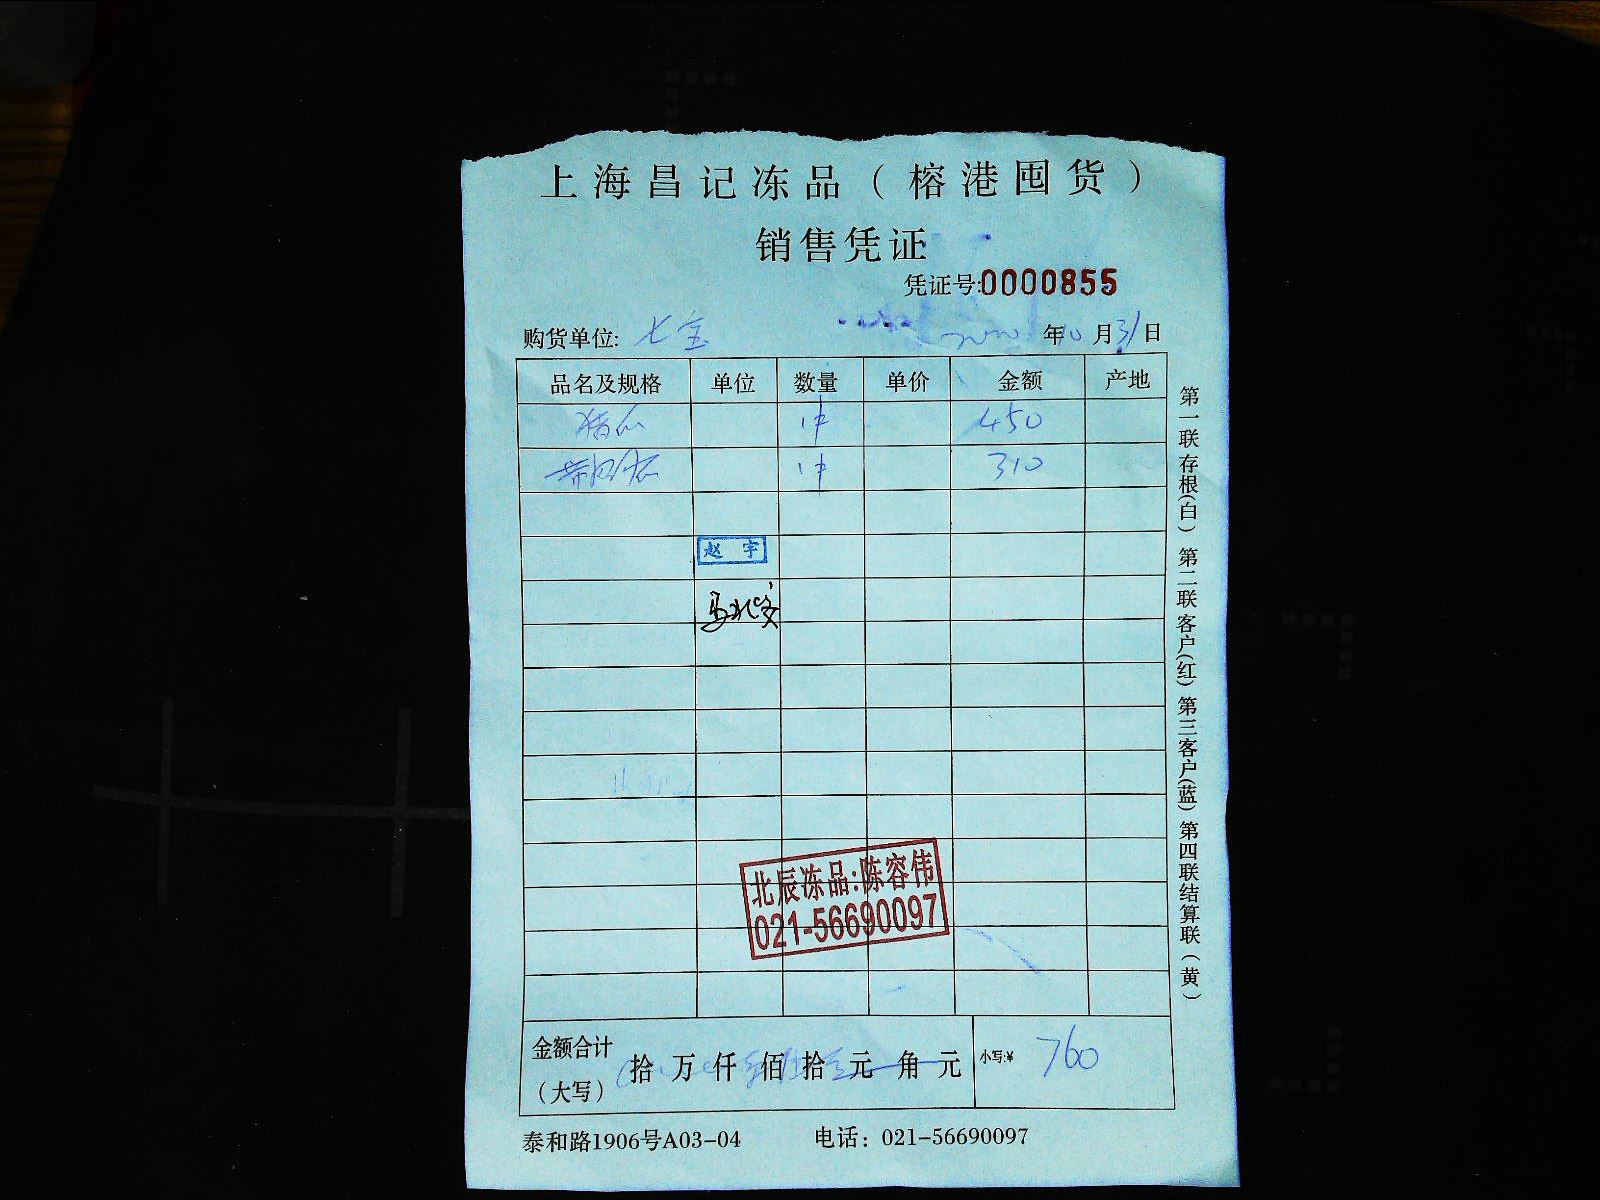 上海昌记冻品（榕港囤货）
销售凭证
凭证号:0000855
购货单位: 七宝 2020年10月31日
品名及规格 单位 数量 单价 金额 产地
1件 450
1件 310
赵宇
北辰冻品:陈容伟
021-56690097
金额合计（大写） 拾万仟佰拾元角元 小写:¥ 760
泰和路1906号A03-04 电话：021-56690097
第一联存根(白) 第二联客户(红) 第三客户(蓝) 第四联结算联(黄)